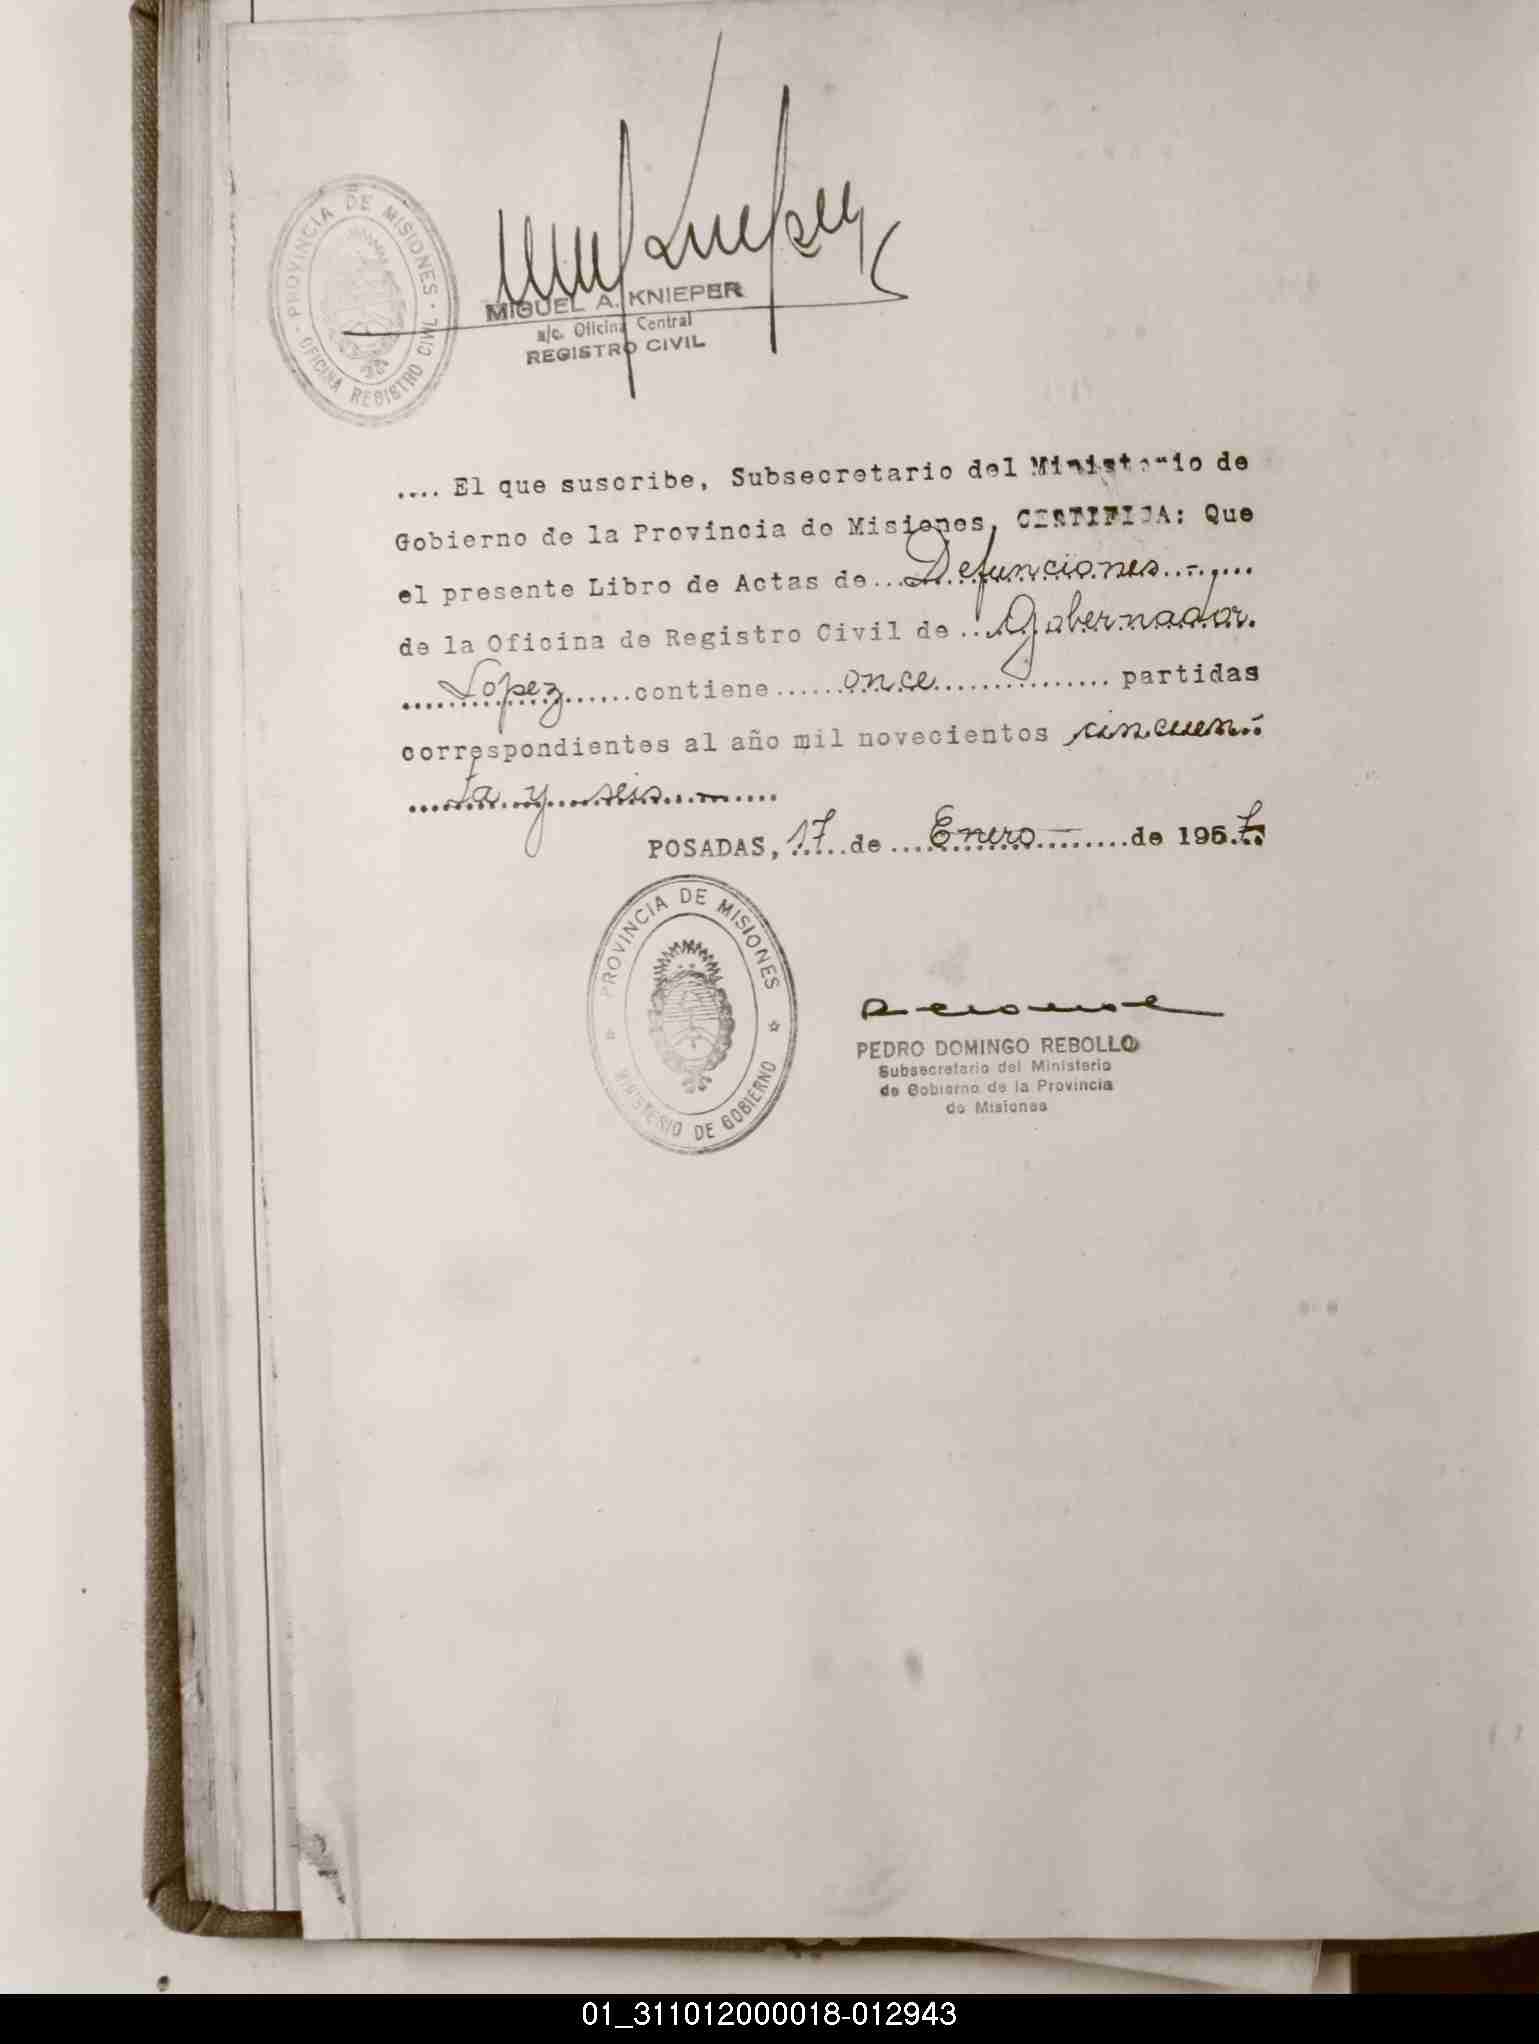 PROVINCIA DE MISIONES
OFICINA REGISTRO CIVIL
MIGUEL A. KNIEPER
a/c. Oficina Central
REGISTRO CIVIL
.... El que suscribe, Subsecretario del Ministerio de
Gobierno de la Provincia de Misiones, CERTIFICA: Que
el presente Libro de Actas de...Defunciones..-.,...
de la Oficina de Registro Civil de ...Gobernador.
....Lopez......contiene......once............... partidas
correspondientes al año mil novecientos cincuen-
....ta y seis.......
POSADAS, 17 de ....Enero........de 1957.
PROVINCIA DE MISIONES
MINISTERIO DE GOBIERNO
PEDRO DOMINGO REBOLLO
Subsecretario del Ministerio
de Gobierno de la Provincia
de Misiones
01_311012000018-012943